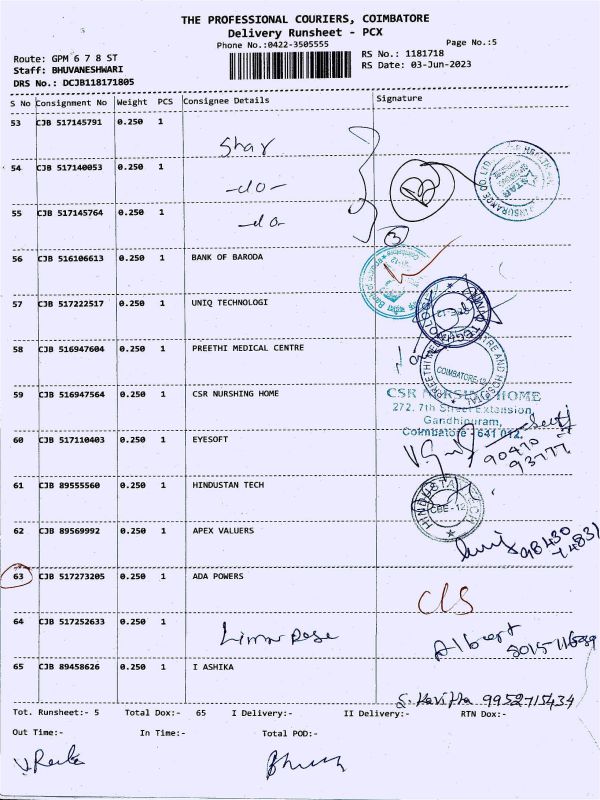 THE PROFESSIONAL COURIERS, COIMBATORE
Delivery Runsheet - PCX
Phone No.:0422-3505555 Page No.:5
Route: GPM 6 7 8 ST RS No.: 1181718
Staff: BHUVANESHWARI RS Date: 03-Jun-2023
DRS No.: DCJB118171805
S No Consignment No Weight PCS Consignee Details Signature
53 CJB 517145791 0.250 1
54 CJB 517140053 0.250 1 -do-
55 CJB 517145764 0.250 1 -do-
3
56 CJB 516106613 0.250 1 BANK OF BARODA
57 CJB 517222517 0.250 1 UNIQ TECHNOLOGI
58 CJB 516947604 0.250 1 PREETHI MEDICAL CENTRE COIMBATORE-12
59 CJB 516947564 0.250 1 CSR NURSHING HOME CSR NURSING HOME
272, 7th Street Extension,
Gandhipuram,
Coimbatore - 641 012.
60 CJB 517110403 0.250 1 EYESOFT
90470
93777
61 CJB 89555560 0.250 1 HINDUSTAN TECH HINDUSTAN TECH CBE-12
62 CJB 89569992 0.250 1 APEX VALUERS
98430
14831
63 CJB 517273205 0.250 1 ADA POWERS
64 CJB 517252633 0.250 1 Albert
65 CJB 89458626 0.250 1 I ASHIKA S. Kavitha 9952715434
Tot. Runsheet:- 5 Total Dox:- 65 I Delivery:- II Delivery:- RTN Dox:-
Out Time:- In Time:- Total POD:-